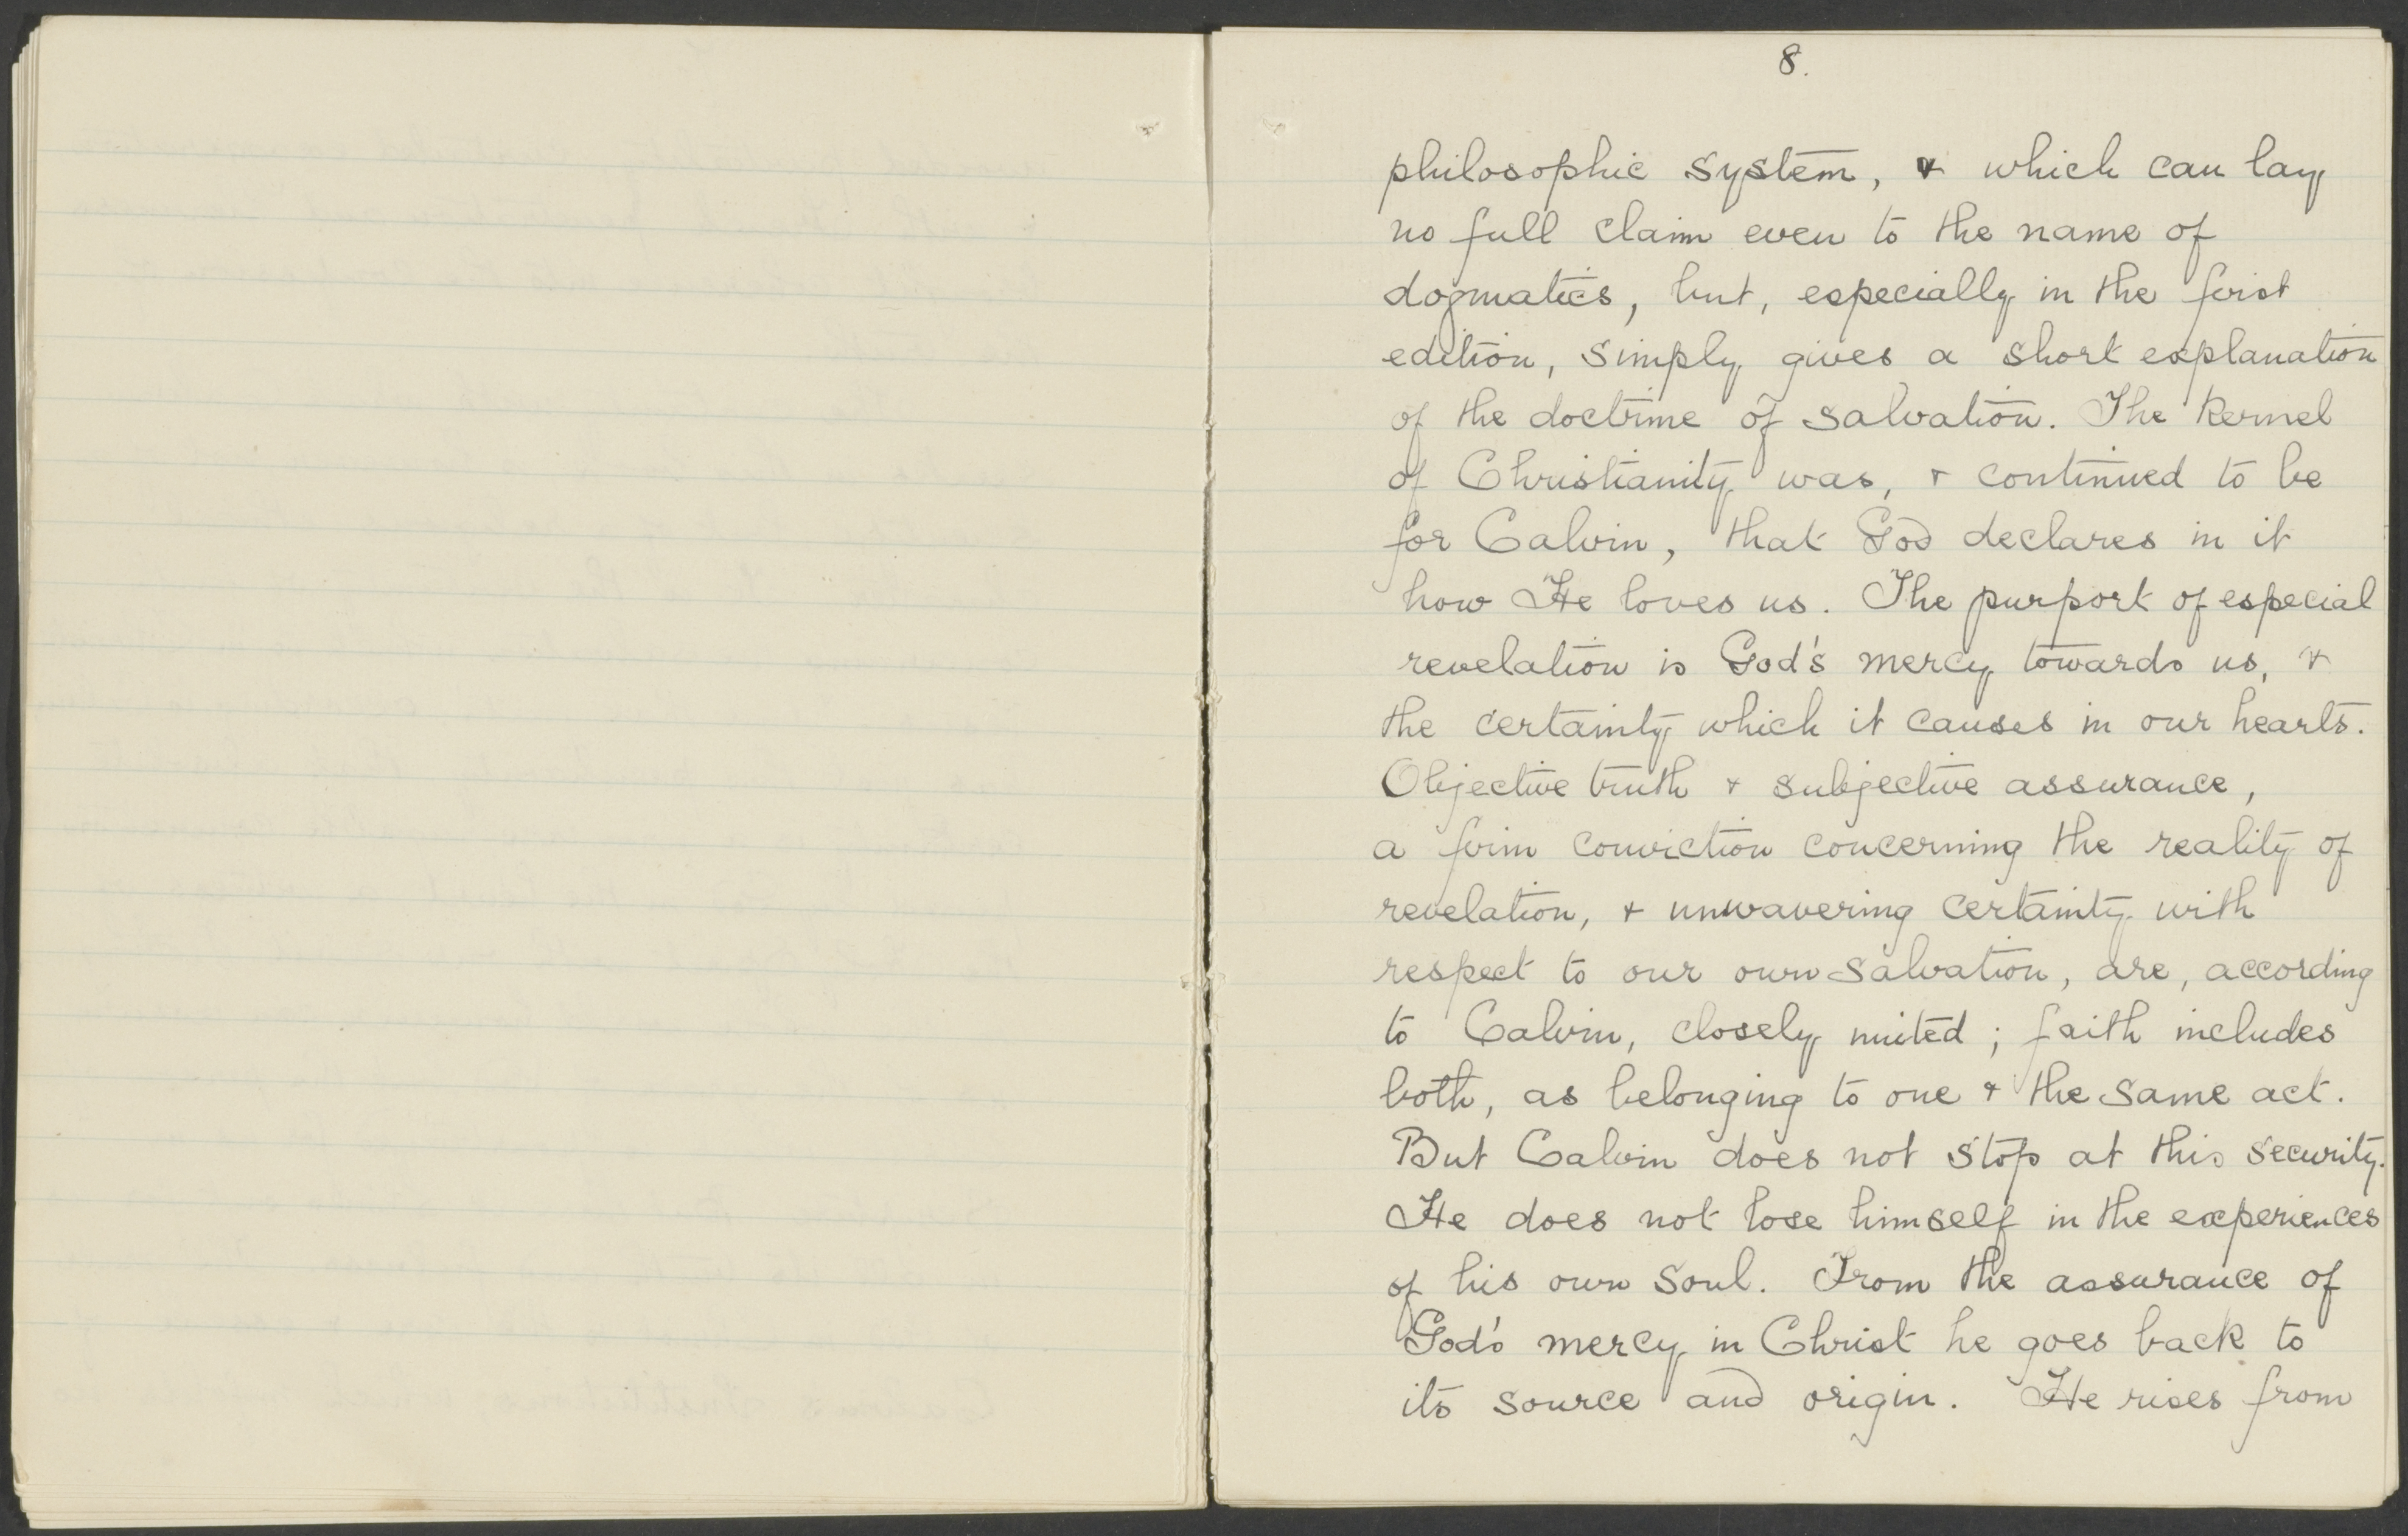 8.
philosophic system, & which can lay
no full claim even to the name of
dogmatics, but, especially in the first
edition, simply gives a short explanation
of the doctrine of salvation. The kernel
of Christianity was, & continued to be
for Calvin, that God declares in it
how He loves us. The purport of especial
revelation is God's mercy towards us, &
the certainty which it causes in our hearts.
Objective truth & subjective assurance,
a firm conviction concerning the reality of
revelation, & unwavering certainty with
respect to our own salvation, are, according
to Calvin, closely united; faith includes
both, as belonging to one & the same act.
But Calvin does not stop at this security.
He does not lose himself in the experiences
of his own soul. From the assurance of
God's mercy in Christ he goes back to
its source and origin. He rises from